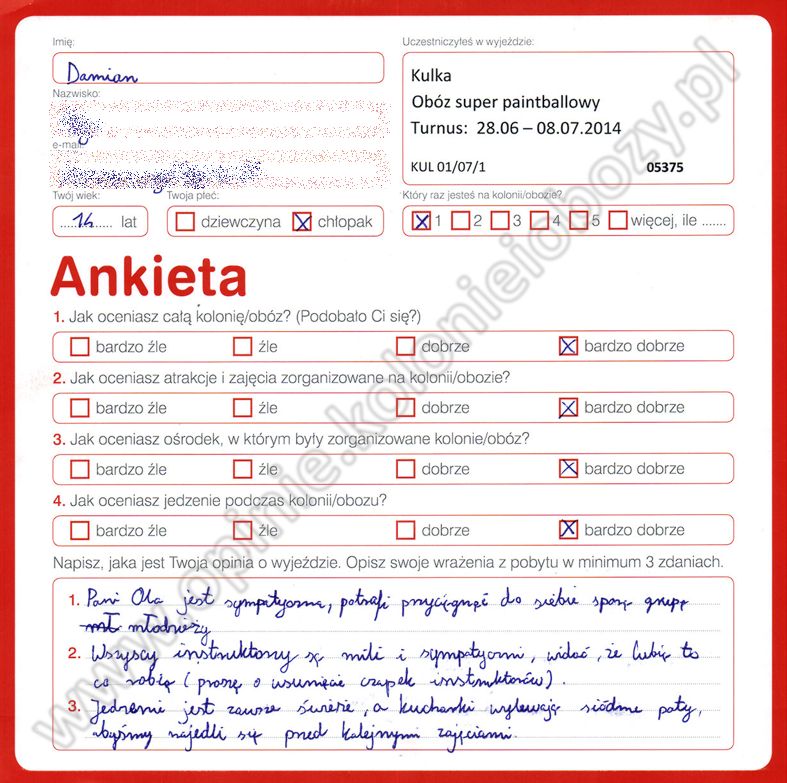 Imię:
Damian
Nazwisko:
e-mail:
Twój wiek:
14 lat
Twoja płeć:
dziewczyna chłopak
Uczestniczyłeś w wyjeździe:
Kulka
Obóz super paintballowy
Turnus: 28.06 – 08.07.2014
KUL 01/07/1 05375
Który raz jesteś na kolonii/obozie?
1 2 3 4 5 więcej, ile .......
Ankieta
1. Jak oceniasz całą kolonię/obóz? (Podobało Ci się?)
bardzo źle źle dobrze bardzo dobrze
2. Jak oceniasz atrakcje i zajęcia zorganizowane na kolonii/obozie?
bardzo źle źle dobrze bardzo dobrze
3. Jak oceniasz ośrodek, w którym były zorganizowane kolonie/obóz?
bardzo źle źle dobrze bardzo dobrze
4. Jak oceniasz jedzenie podczas kolonii/obozu?
bardzo źle źle dobrze bardzo dobrze
Napisz, jaka jest Twoja opinia o wyjeździe. Opisz swoje wrażenia z pobytu w minimum 3 zdaniach.
1. Pani Ola jest sympatyczna, potrafi przyciągnąć do siebie sporą grupę
młodzieży
2. Wszyscy instruktorzy są mili i sympatyczni, widać, że lubią to
co robią (proszę o usunięcie czapek instruktorów).
3. Jedzenie jest zawsze świeże, a kucharki wylewają siódme poty,
abyśmy najedli się przed kolejnymi zajęciami.
www.opinie.kolonieiobozy.pl